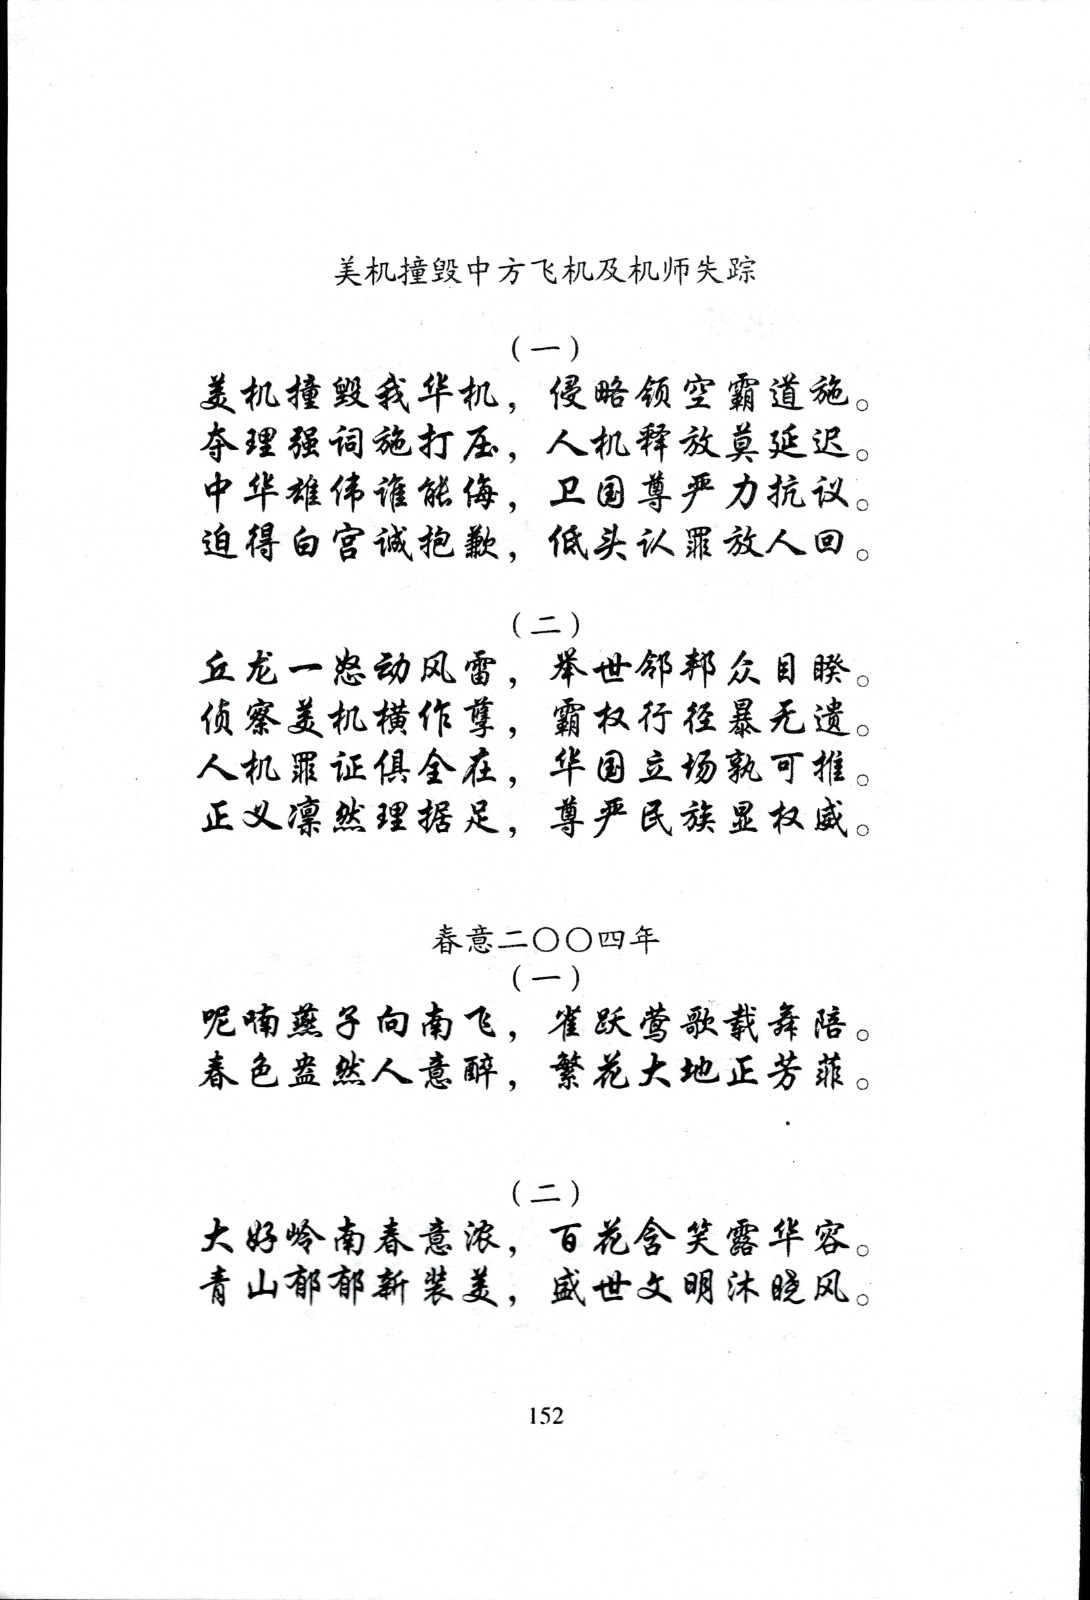 美机撞毁中方飞机及机师失踪
（一）
美机撞毁我华机，侵略领空霸道施。
夺理强词施打压，人机释放莫延迟。
中华雄伟谁能侮，卫国尊严力抗议。
迫得白宫诚抱歉，低头认罪放人回。
（二）
丘龙一怒动风雷，举世邻邦众目睽。
侦察美机横作孽，霸权行径暴无遗。
人机罪证俱全在，华国立场孰可推。
正义凛然理据足，尊严民族显权威。
春意二〇〇四年
（一）
呢喃燕子向南飞，雀跃莺歌载舞陪。
春色盎然人意醉，繁花大地正芳菲。
（二）
大好岭南春意浓，百花含笑露华容。
青山郁郁新装美，盛世文明沐晓风。
152